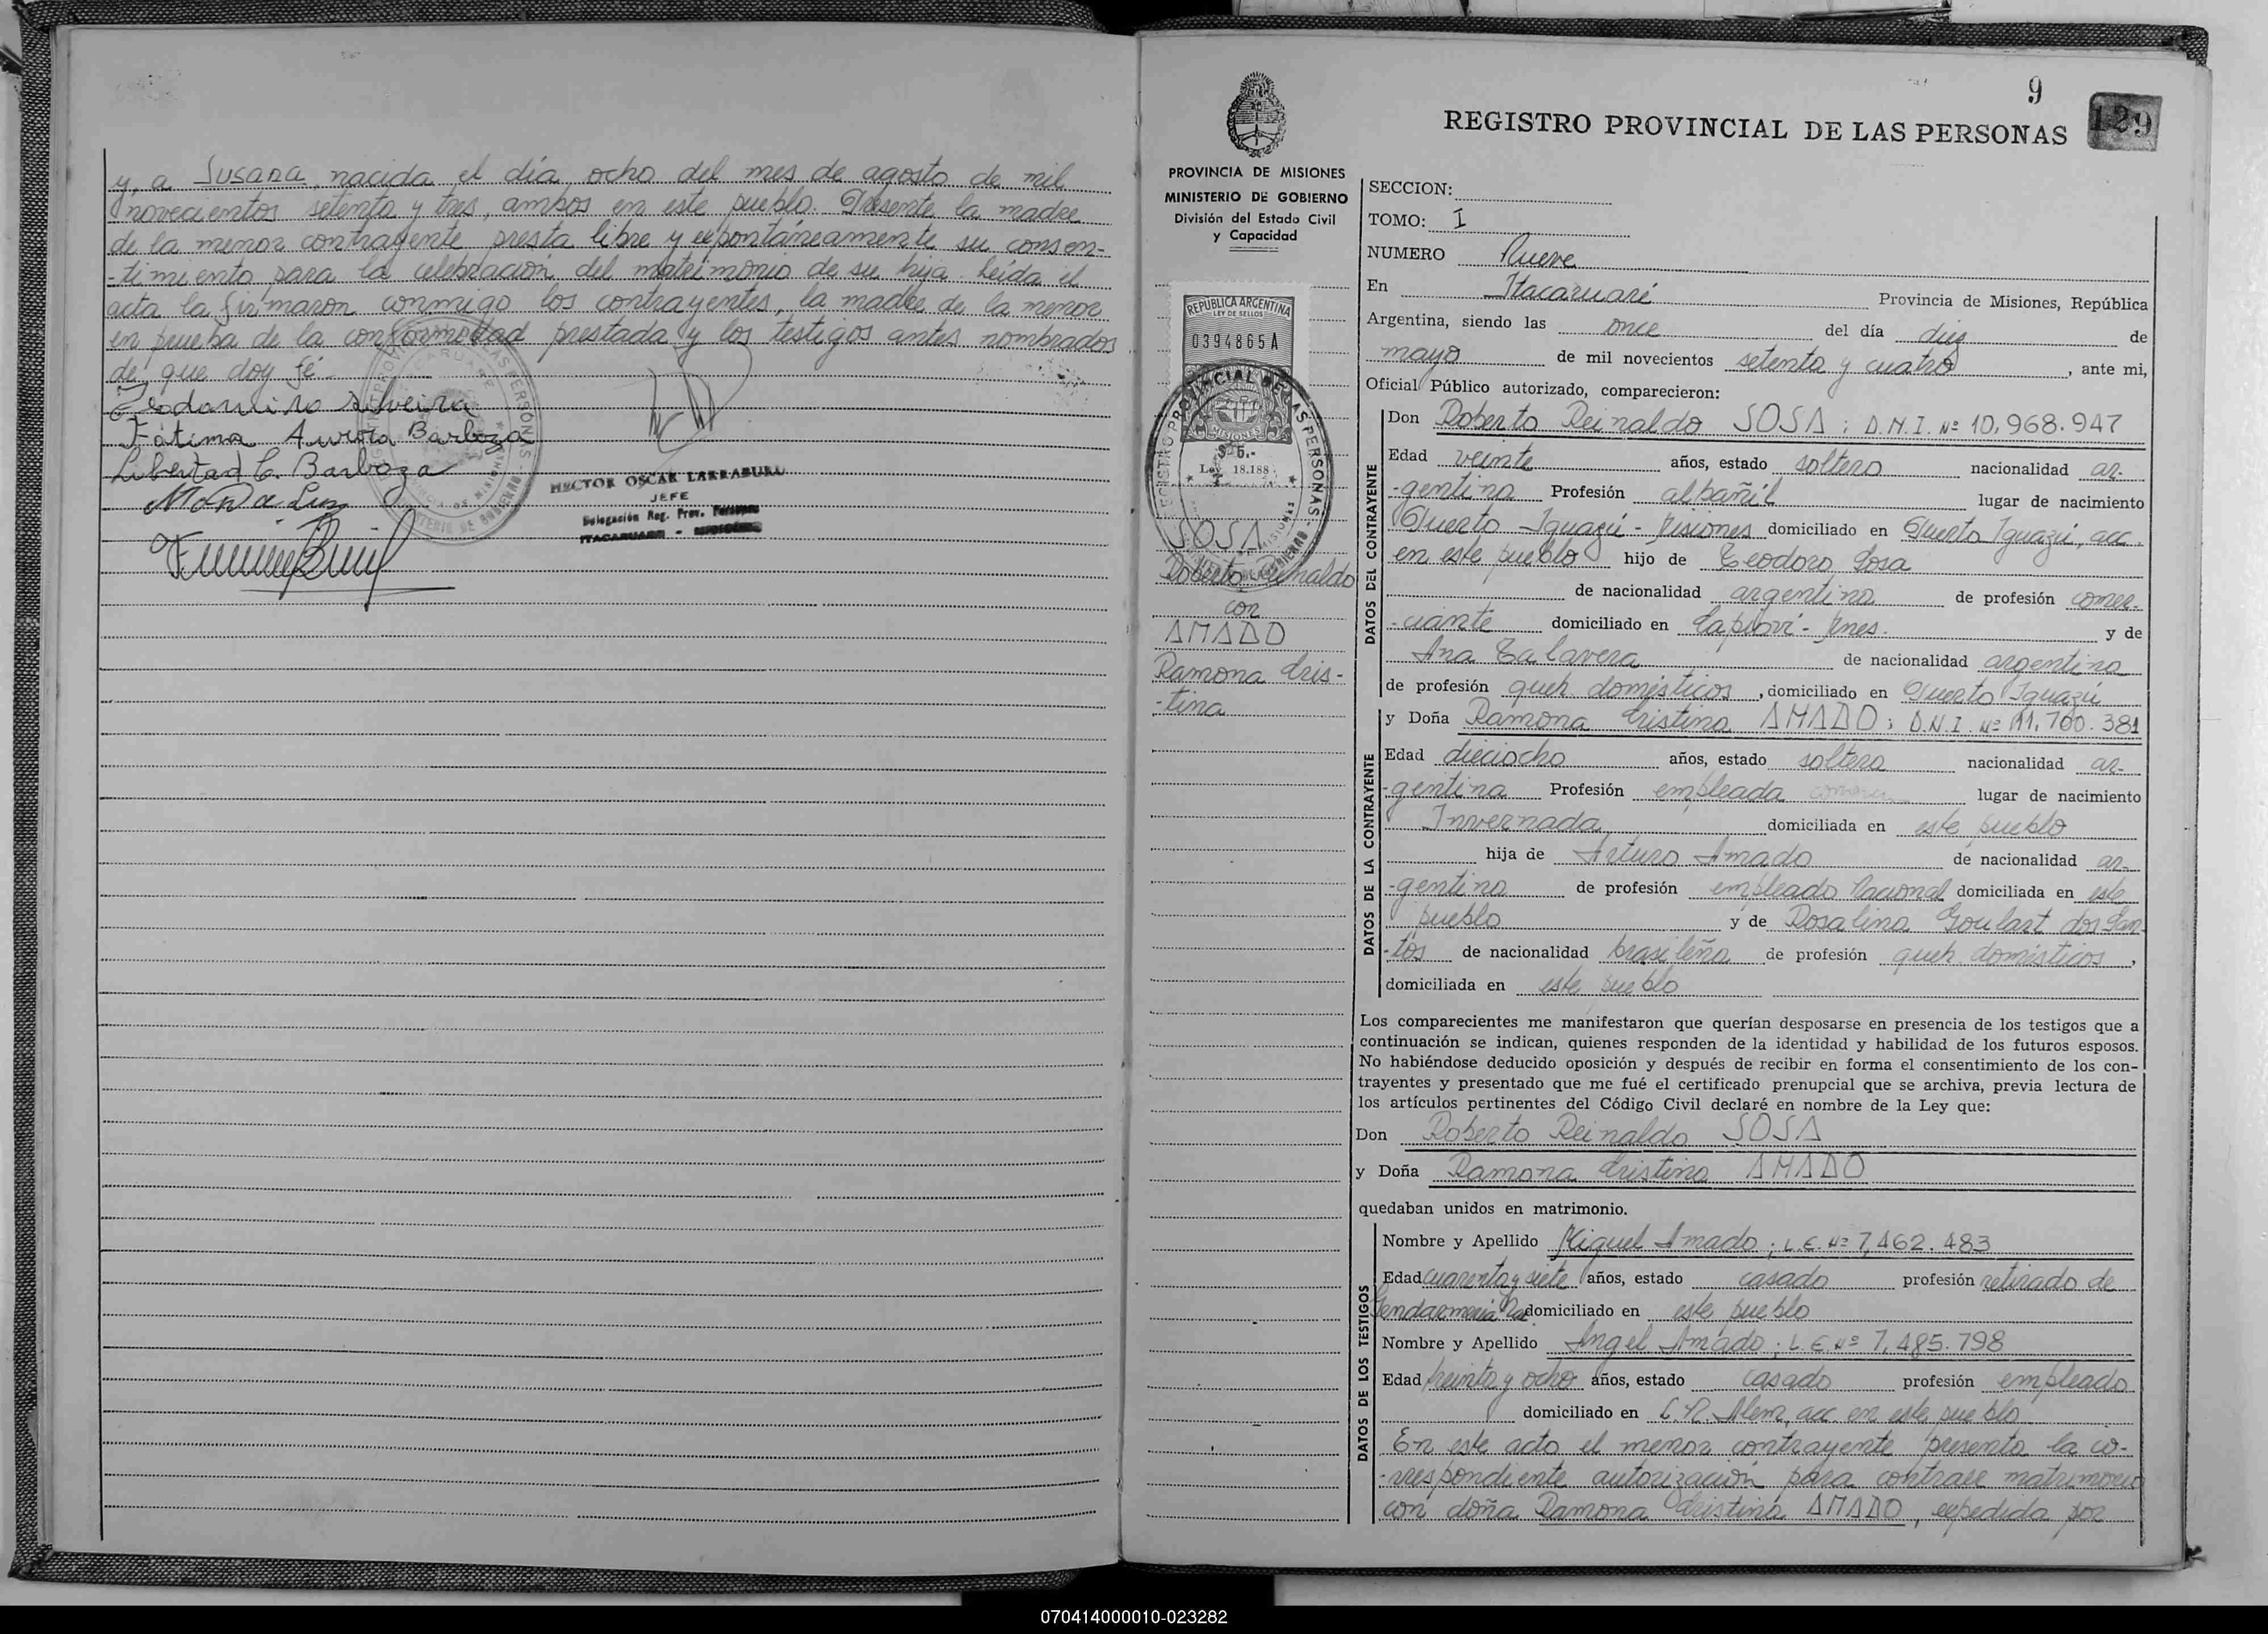 y, a Susana, nacida el día ocho del mes de agosto de mil
novecientos setenta y tres, ambos en este pueblo. Presente la madre
de la menor contrayente presta libre y expontáneamente su consen-
-timiento para la celebración del matrimonio de su hija. Leída el
acta la firmaron conmigo los contrayentes, la madre de la menor
en prueba de la conformidad prestada y los testigos antes nombrados
de que doy fé.
Teodomiro Silveira
Fátima Aurora Barboza
Libertad C. Barboza
HECTOR OSCAR LARRABURU
JEFE
Delegación Reg. Prov. Personas
ITACARUARE - MISIONES
9
129
REGISTRO PROVINCIAL DE LAS PERSONAS
PROVINCIA DE MISIONES
MINISTERIO DE GOBIERNO
División del Estado Civil
y Capacidad
REPUBLICA ARGENTINA
LEY DE SELLOS
0394865A
MISIONES
$ 5.-
Ley 18.188
SOSA
Roberto Reinaldo
con
AMADO
Ramona Cris-
-tina
SECCION:
TOMO: I
NUMERO Nueve
En Itacaruaré Provincia de Misiones, República
Argentina, siendo las once del día diez de
mayo de mil novecientos setenta y cuatro, ante mi,
Oficial Público autorizado, comparecieron:
DATOS DEL CONTRAYENTE
Don Roberto Reinaldo SOSA; D.N.I. Nº 10.968.947
Edad veinte años, estado soltero nacionalidad ar-
-gentina Profesión albañil lugar de nacimiento
Puerto Iguazú - Misiones domiciliado en Puerto Iguazú, acc.
en este pueblo hijo de Teodoro Sosa
de nacionalidad argentina de profesión comer-
-ciante domiciliado en Capioví - Mnes. y de
Ana Talavera de nacionalidad argentina
de profesión queh. domésticos, domiciliado en Puerto Iguazú
DATOS DE LA CONTRAYENTE
y Doña Ramona Cristina AMADO; D.N.I. Nº 11.700.381
Edad dieciocho años, estado soltera nacionalidad ar-
-gentina Profesión empleada lugar de nacimiento
Invernada domiciliada en este pueblo
hija de Arturo Amado de nacionalidad ar-
-gentina de profesión empleado Nacional domiciliada en este
pueblo y de Rosalina Goulart dos San-
-tos de nacionalidad brasileña de profesión queh. domésticos,
domiciliada en este pueblo
Los comparecientes me manifestaron que querían desposarse en presencia de los testigos que a
continuación se indican, quienes responden de la identidad y habilidad de los futuros esposos.
No habiéndose deducido oposición y después de recibir en forma el consentimiento de los con-
trayentes y presentado que me fué el certificado prenupcial que se archiva, previa lectura de
los artículos pertinentes del Código Civil declaré en nombre de la Ley que:
Don Roberto Reinaldo SOSA
y Doña Ramona Cristina AMADO
quedaban unidos en matrimonio.
DATOS DE LOS TESTIGOS
Nombre y Apellido Miguel Amado; L.E. Nº 7.462.483
Edad cuarenta y siete años, estado casado profesión retirado de
Gendarmería Nac. domiciliado en este pueblo
Nombre y Apellido Angel Amado; L.E. Nº 7.485.798
Edad treinta y ocho años, estado casado profesión empleado
domiciliado en L.N. Alem, acc. en este pueblo
En este acto el menor contrayente presenta la co-
-rrespondiente autorización para contraer matrimonio
con doña Ramona Cristina AMADO, expedida por
070414000010-023282